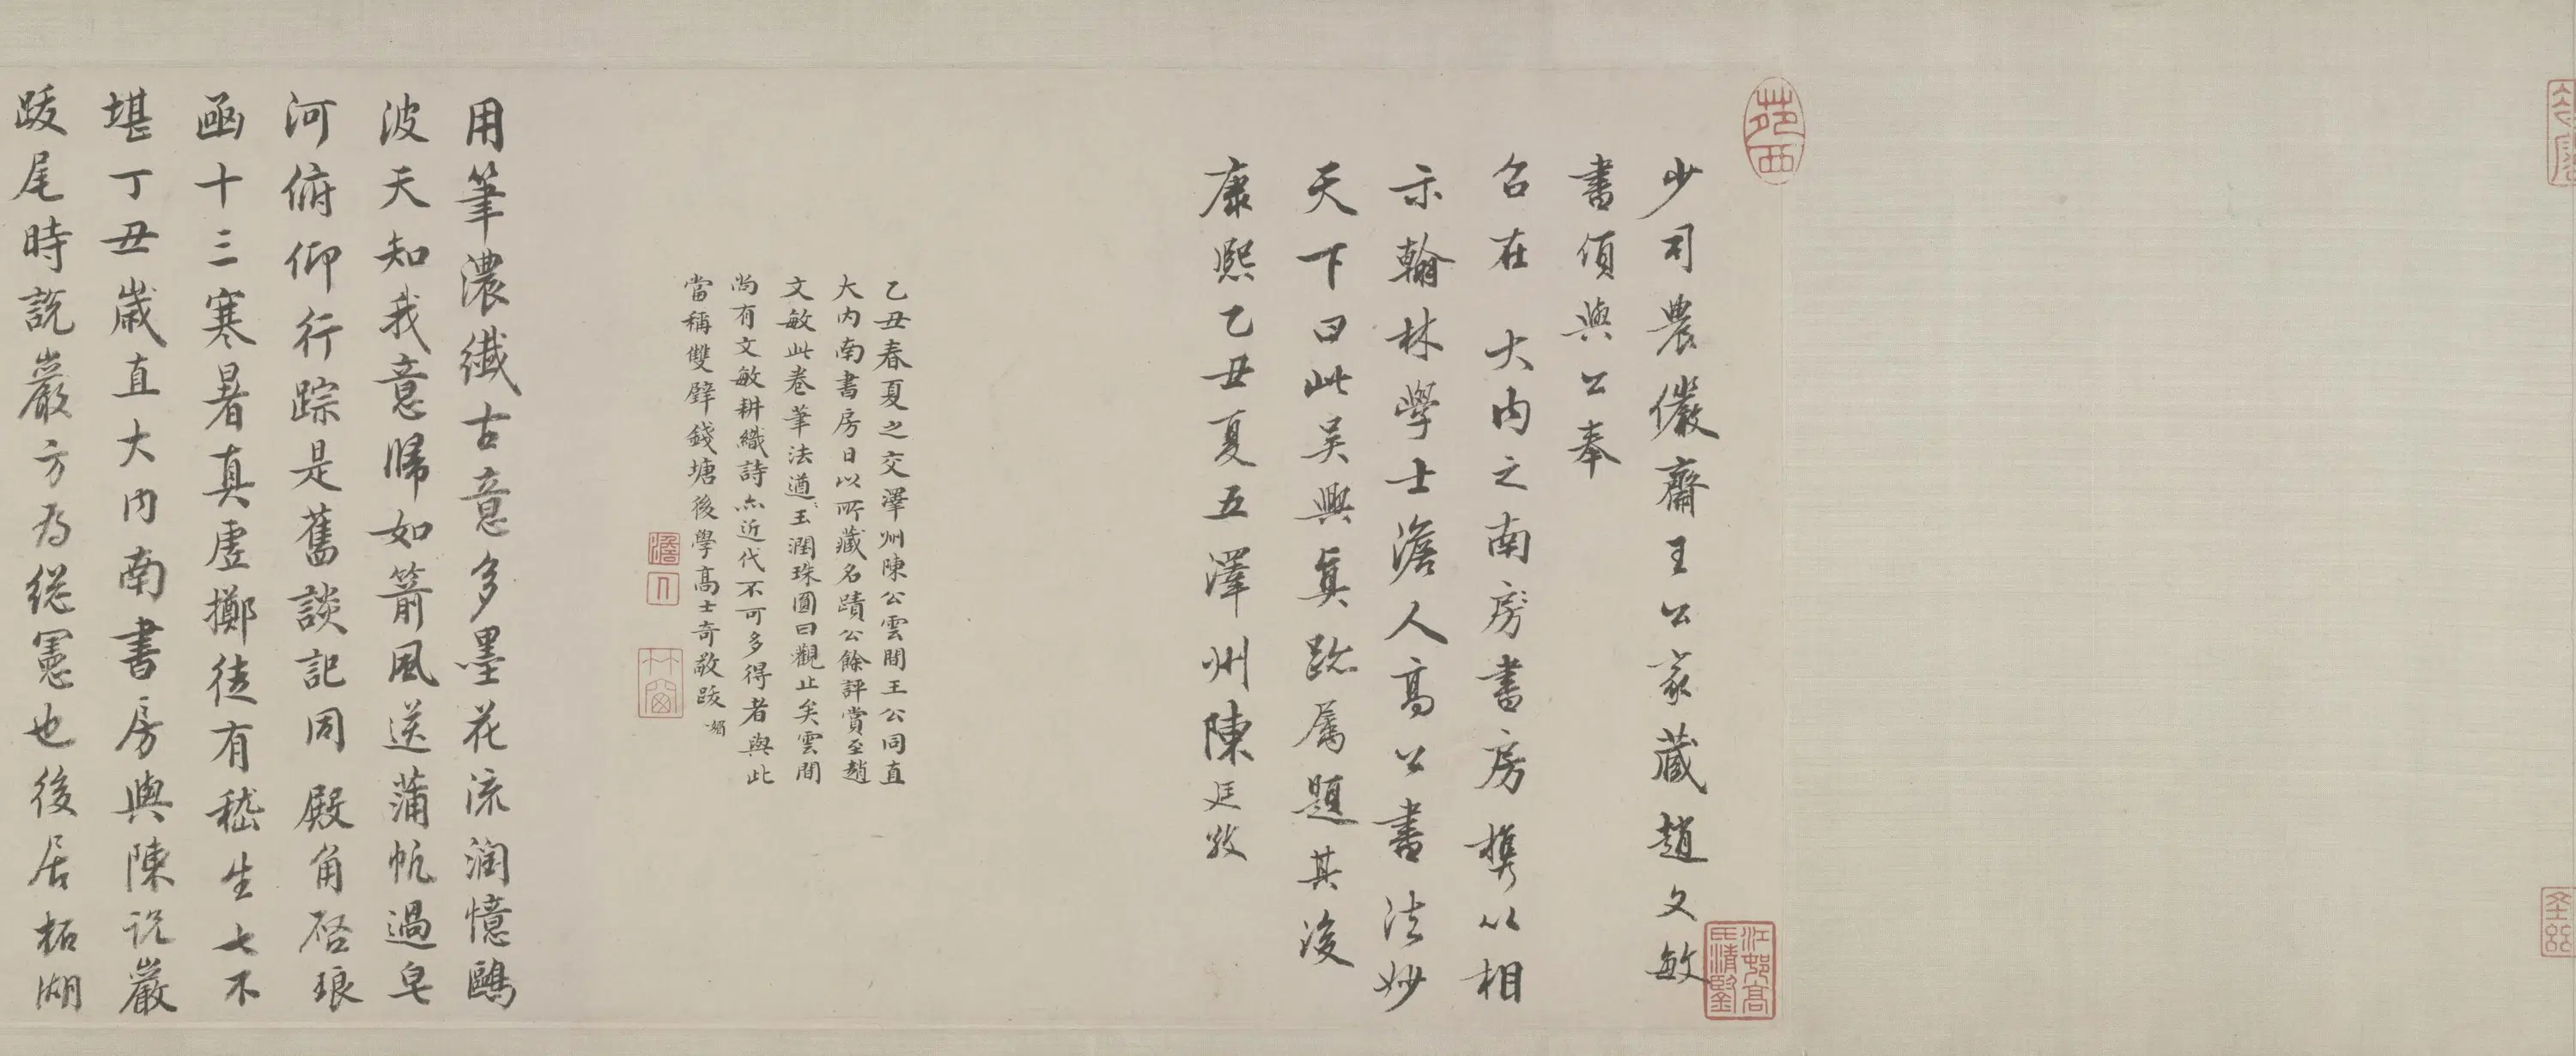 苑西
少司農儼齋王公家藏趙文敏
書傾與公奉
召在 大内之南房書房攜以相
示翰林學士澹人高公書法妙
天下曰此吴興真跡属題其後
康熙乙丑夏五澤州陳廷敬
江邨高氏清鑒
乙丑春夏之交澤州陳公雲間王公同直
大内南書房日以所藏名蹟公餘評賞至趙
文敏此卷筆法遒玉潤珠圓曰觀止矣雲間
尚有文敏耕織詩亦近代不可多得者與此
當稱雙璧錢塘後學高士奇敬跋 媚
澹人
竹窗
用筆濃纖古意多墨花流潤憶鷗
波天知我意歸如箭風送蒲帆過皂
河俯仰行踪是舊談記同殿角啓琅
函十三寒暑真虛擲徒有嵇生七不
堪丁丑歲直大内南書房與陳説巖
跋尾時説巖方為総憲也後居柘湖